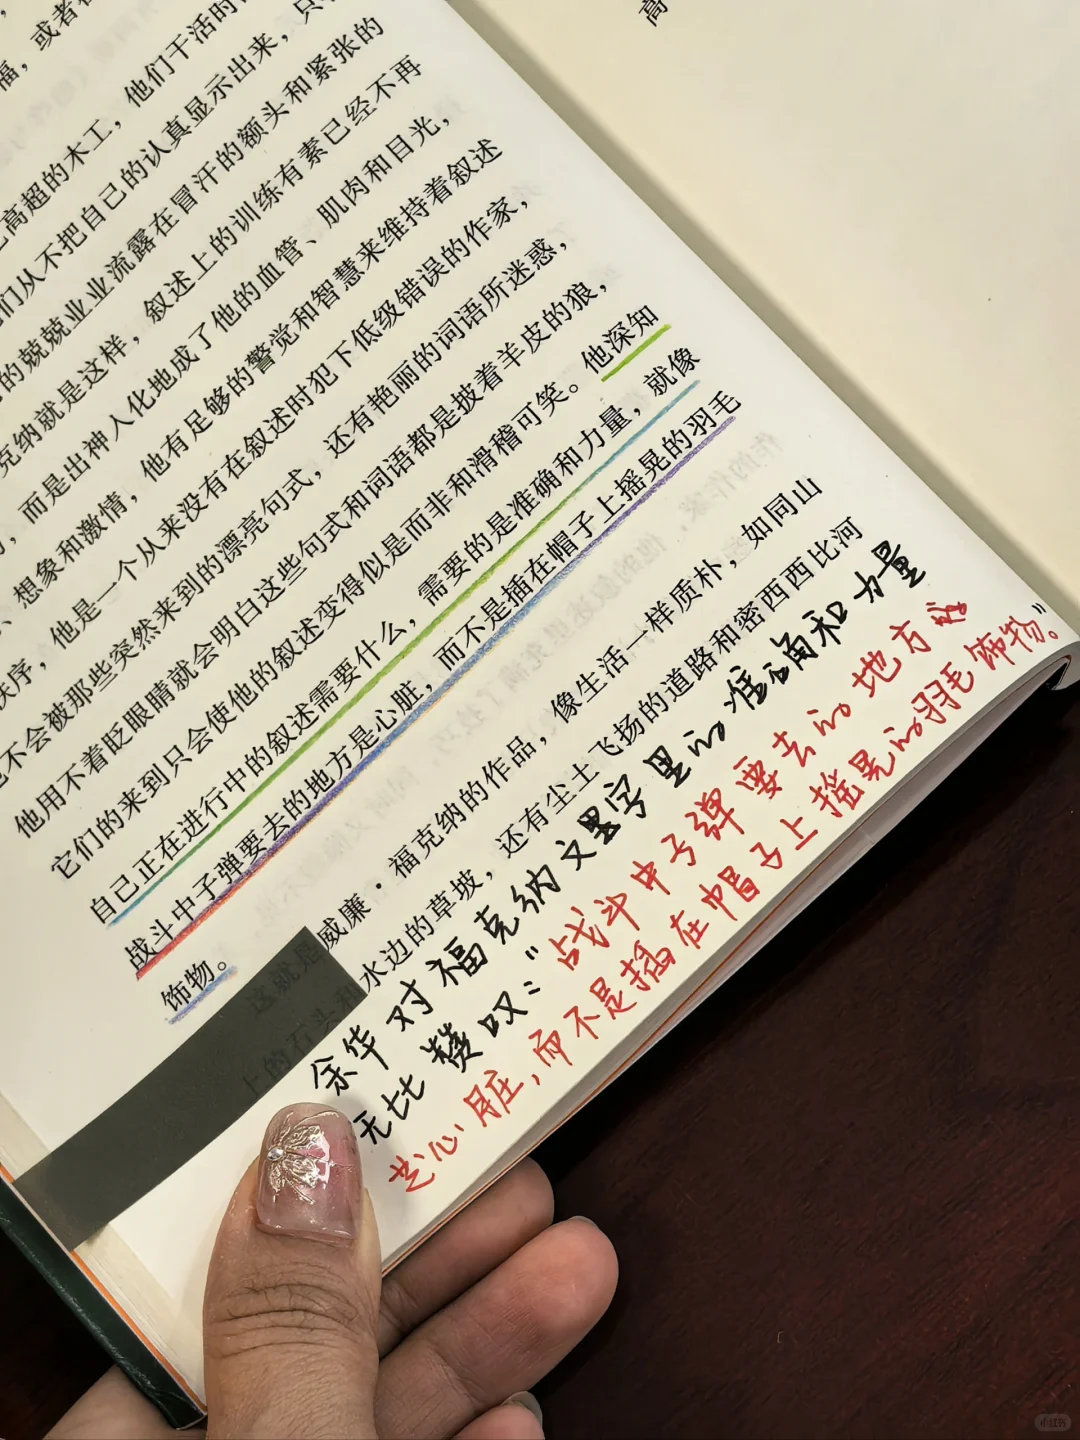 高
福，或者在
高超的木工，他们干活时
们从不把自己的认真显示出来，只
的兢兢业业流露在冒汗的额头和紧张的
克纳就是这样，叙述上的训练有素已经不再
，而是出神入化地成了他的血管、肌肉和目光，
、想象和激情，他有足够的警觉和智慧来维持着叙述
秩序，他是一个从来没有在叙述时犯下低级错误的作家，
不会被那些突然来到的漂亮句式，还有艳丽的词语所迷惑，
他用不着眨眼睛就会明白这些句式和词语都是披着羊皮的狼，
它们的来到只会使他的叙述变得似是而非和滑稽可笑。他深知
自己正在进行中的叙述需要什么，需要的是准确和力量，就像
战斗中子弹要去的地方是心脏，而不是插在帽子上摇晃的羽毛
饰物。
这就是威廉·福克纳的作品，像生活一样质朴，如同山
上的石头和水边的草坡，还有尘土飞扬的道路和密西西比河
余华对福克纳文字里的准确和力量
无比赞叹：“战斗中子弹要去的地方
是心脏，而不是插在帽子上摇晃的羽毛饰物。”
小红书